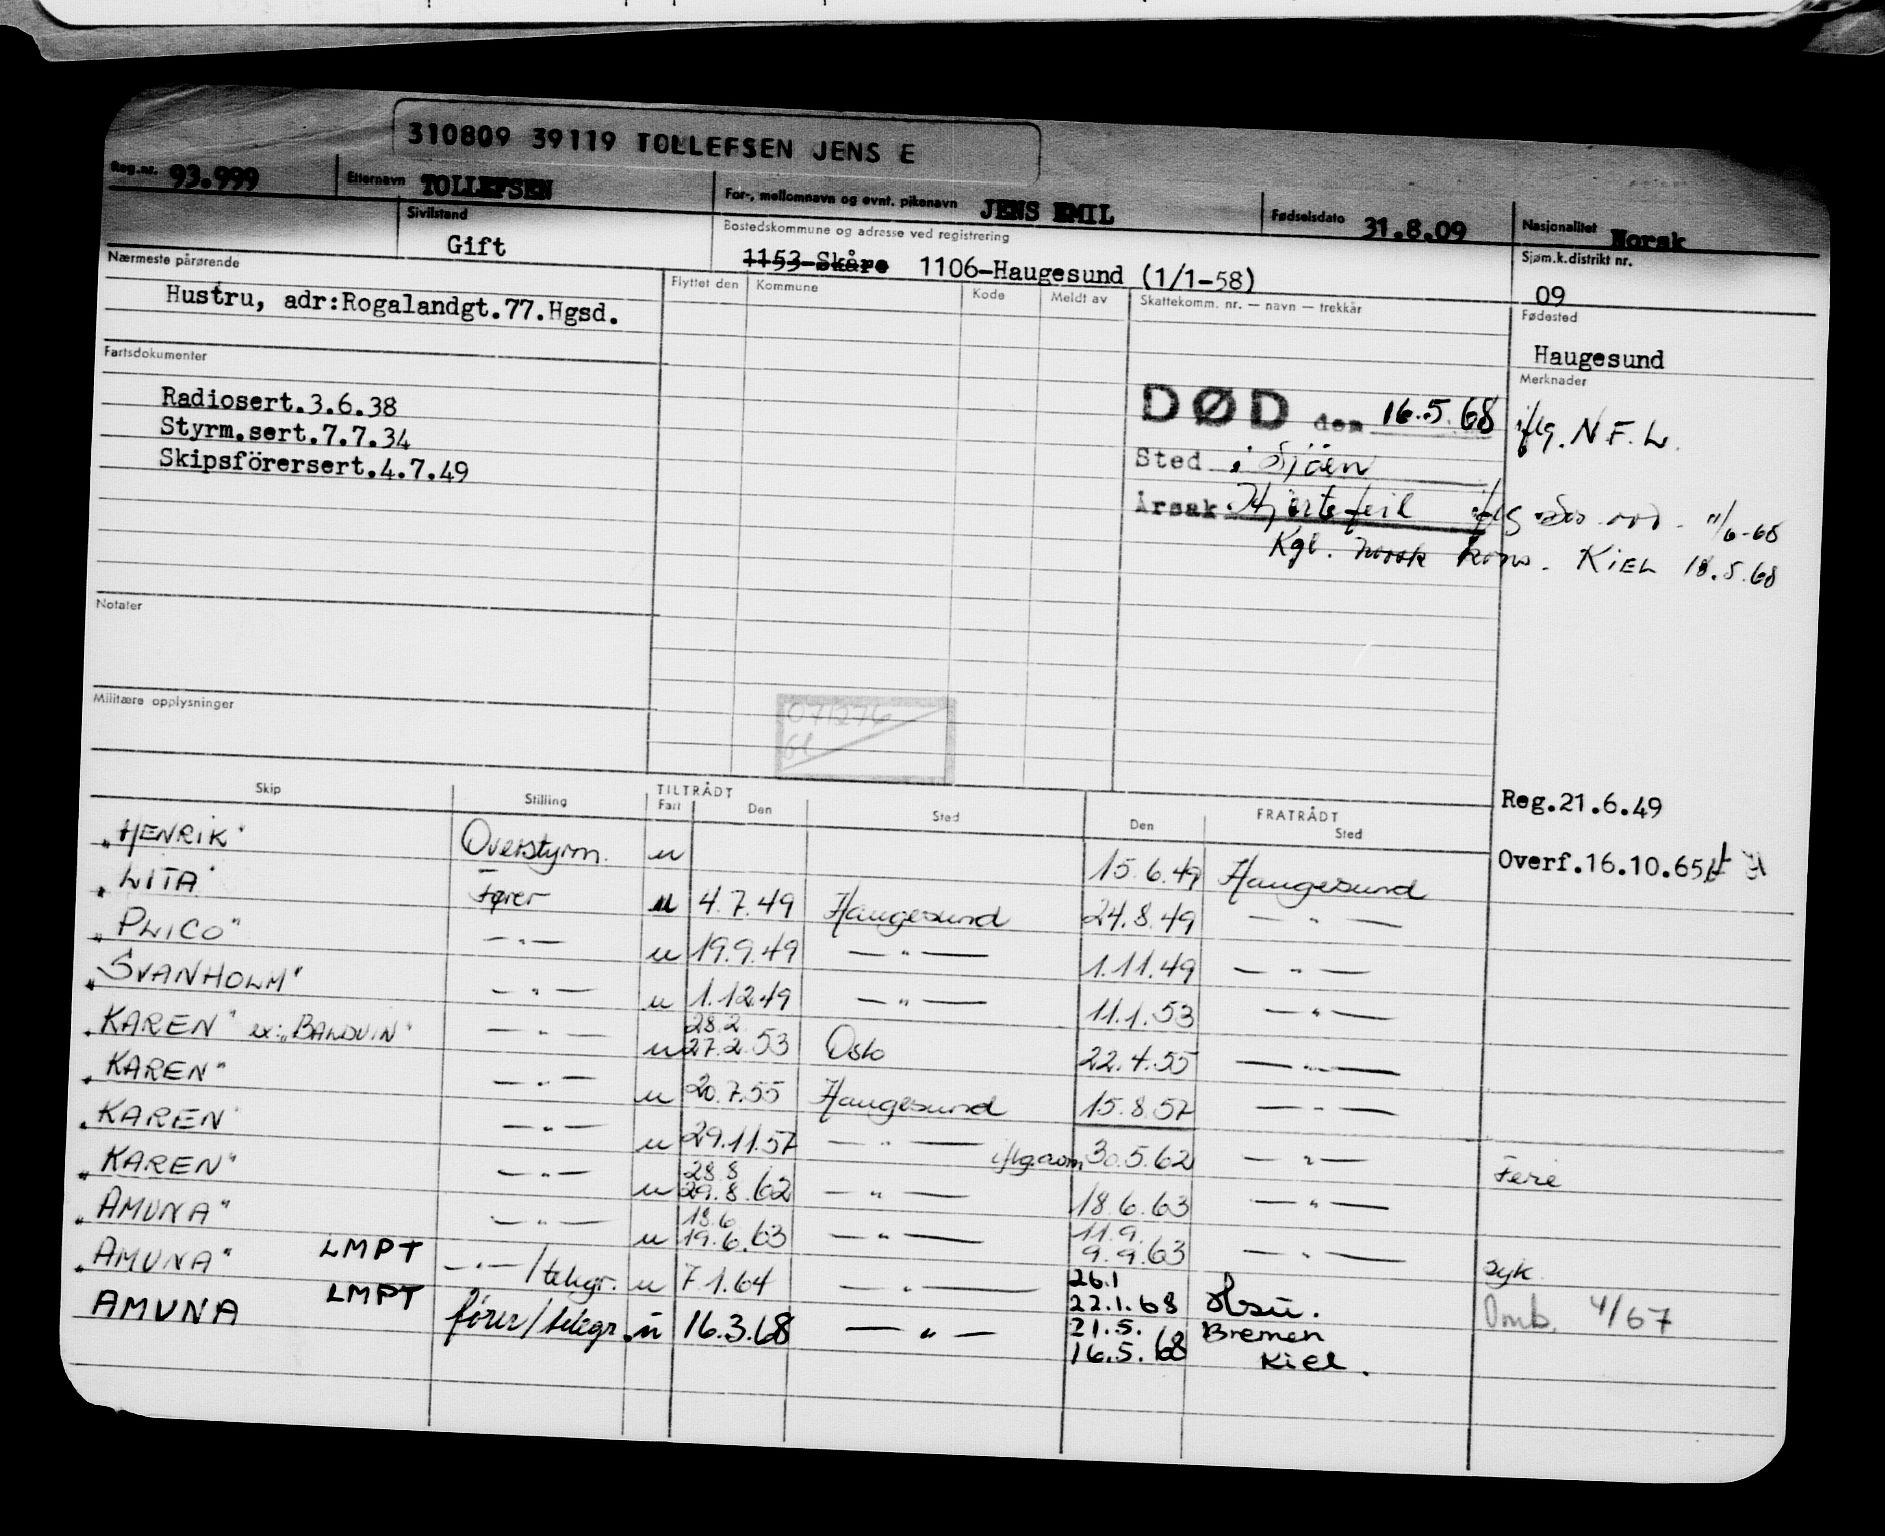 310809 39119 TOLLEFSEN JENS E
Reg.nr. 93.999 Etternavn TOLLEFSEN For-, mellomnavn og evnt. pikenavn JENS EMIL Fødselsdato 31.8.09 Nasjonalitet Norsk
Sivilstand Gift Bostedskommune og adresse ved registrering 1153-Skåre 1106-Haugesund (1/1-58) Sjøm.k.distrikt nr. 09
Nærmeste pårørende Flyttet den Kommune Kode Meldt av Skattekomm. nr. — navn — trekkår Fødested
Hustru, adr:Rogalandgt.77.Hgsd.
Haugesund
Fartsdokumenter
Merknader
Radiosert.3.6.38
Styrm.sert.7.7.34
Skipsförersert.4.7.49
DØD den 16.5.68 iflg. N F. L.
Sted i Sjöen
Årsak Hjertefeil iflg 11/6-68
Kgl. norsk kons. KIEL 18.5.68
Notater
Militære opplysninger
071276
Reg.21.6.49
Overf.16.10.65
Skip Stilling TILTRÅDT Fart Den Sted FRATRÅDT Den Sted
"HENRIK" Overstyrm. u 15.6.49 Haugesund
"LITA" Fører u 4.7.49 Haugesund 24.8.49 — " —
"PLICO" — " — u 19.9.49 — " — 1.11.49 — " —
"SVANHOLM" — " — u 1.12.49 — " — 11.1.53 — " —
"KAREN" ex: "BALDUIN" — " — u 28.2 27.2.53 Oslo 22.4.55 — " —
"KAREN" — " — u 20.7.55 Haugesund 15.8.57 — " —
"KAREN" — " — u 29.11.57 — " — 30.5.62 — " — Ferie
"KAREN" — " — u 28.8 29.8.62 — " — 18.6.63 — " —
"AMUNA" — " — u 18.6 19.6.63 — " — 11.9. 9.9.63 — " — syk
"AMUNA" LMPT — " — /telegr. u 7.1.64 — " — 26.1 22.1.68 Hsu. Omb. 4/67
AMUNA LMPT fører/telegr. u 16.3.68 — " — 21.5. Bremen
16.5.68 Kiel.